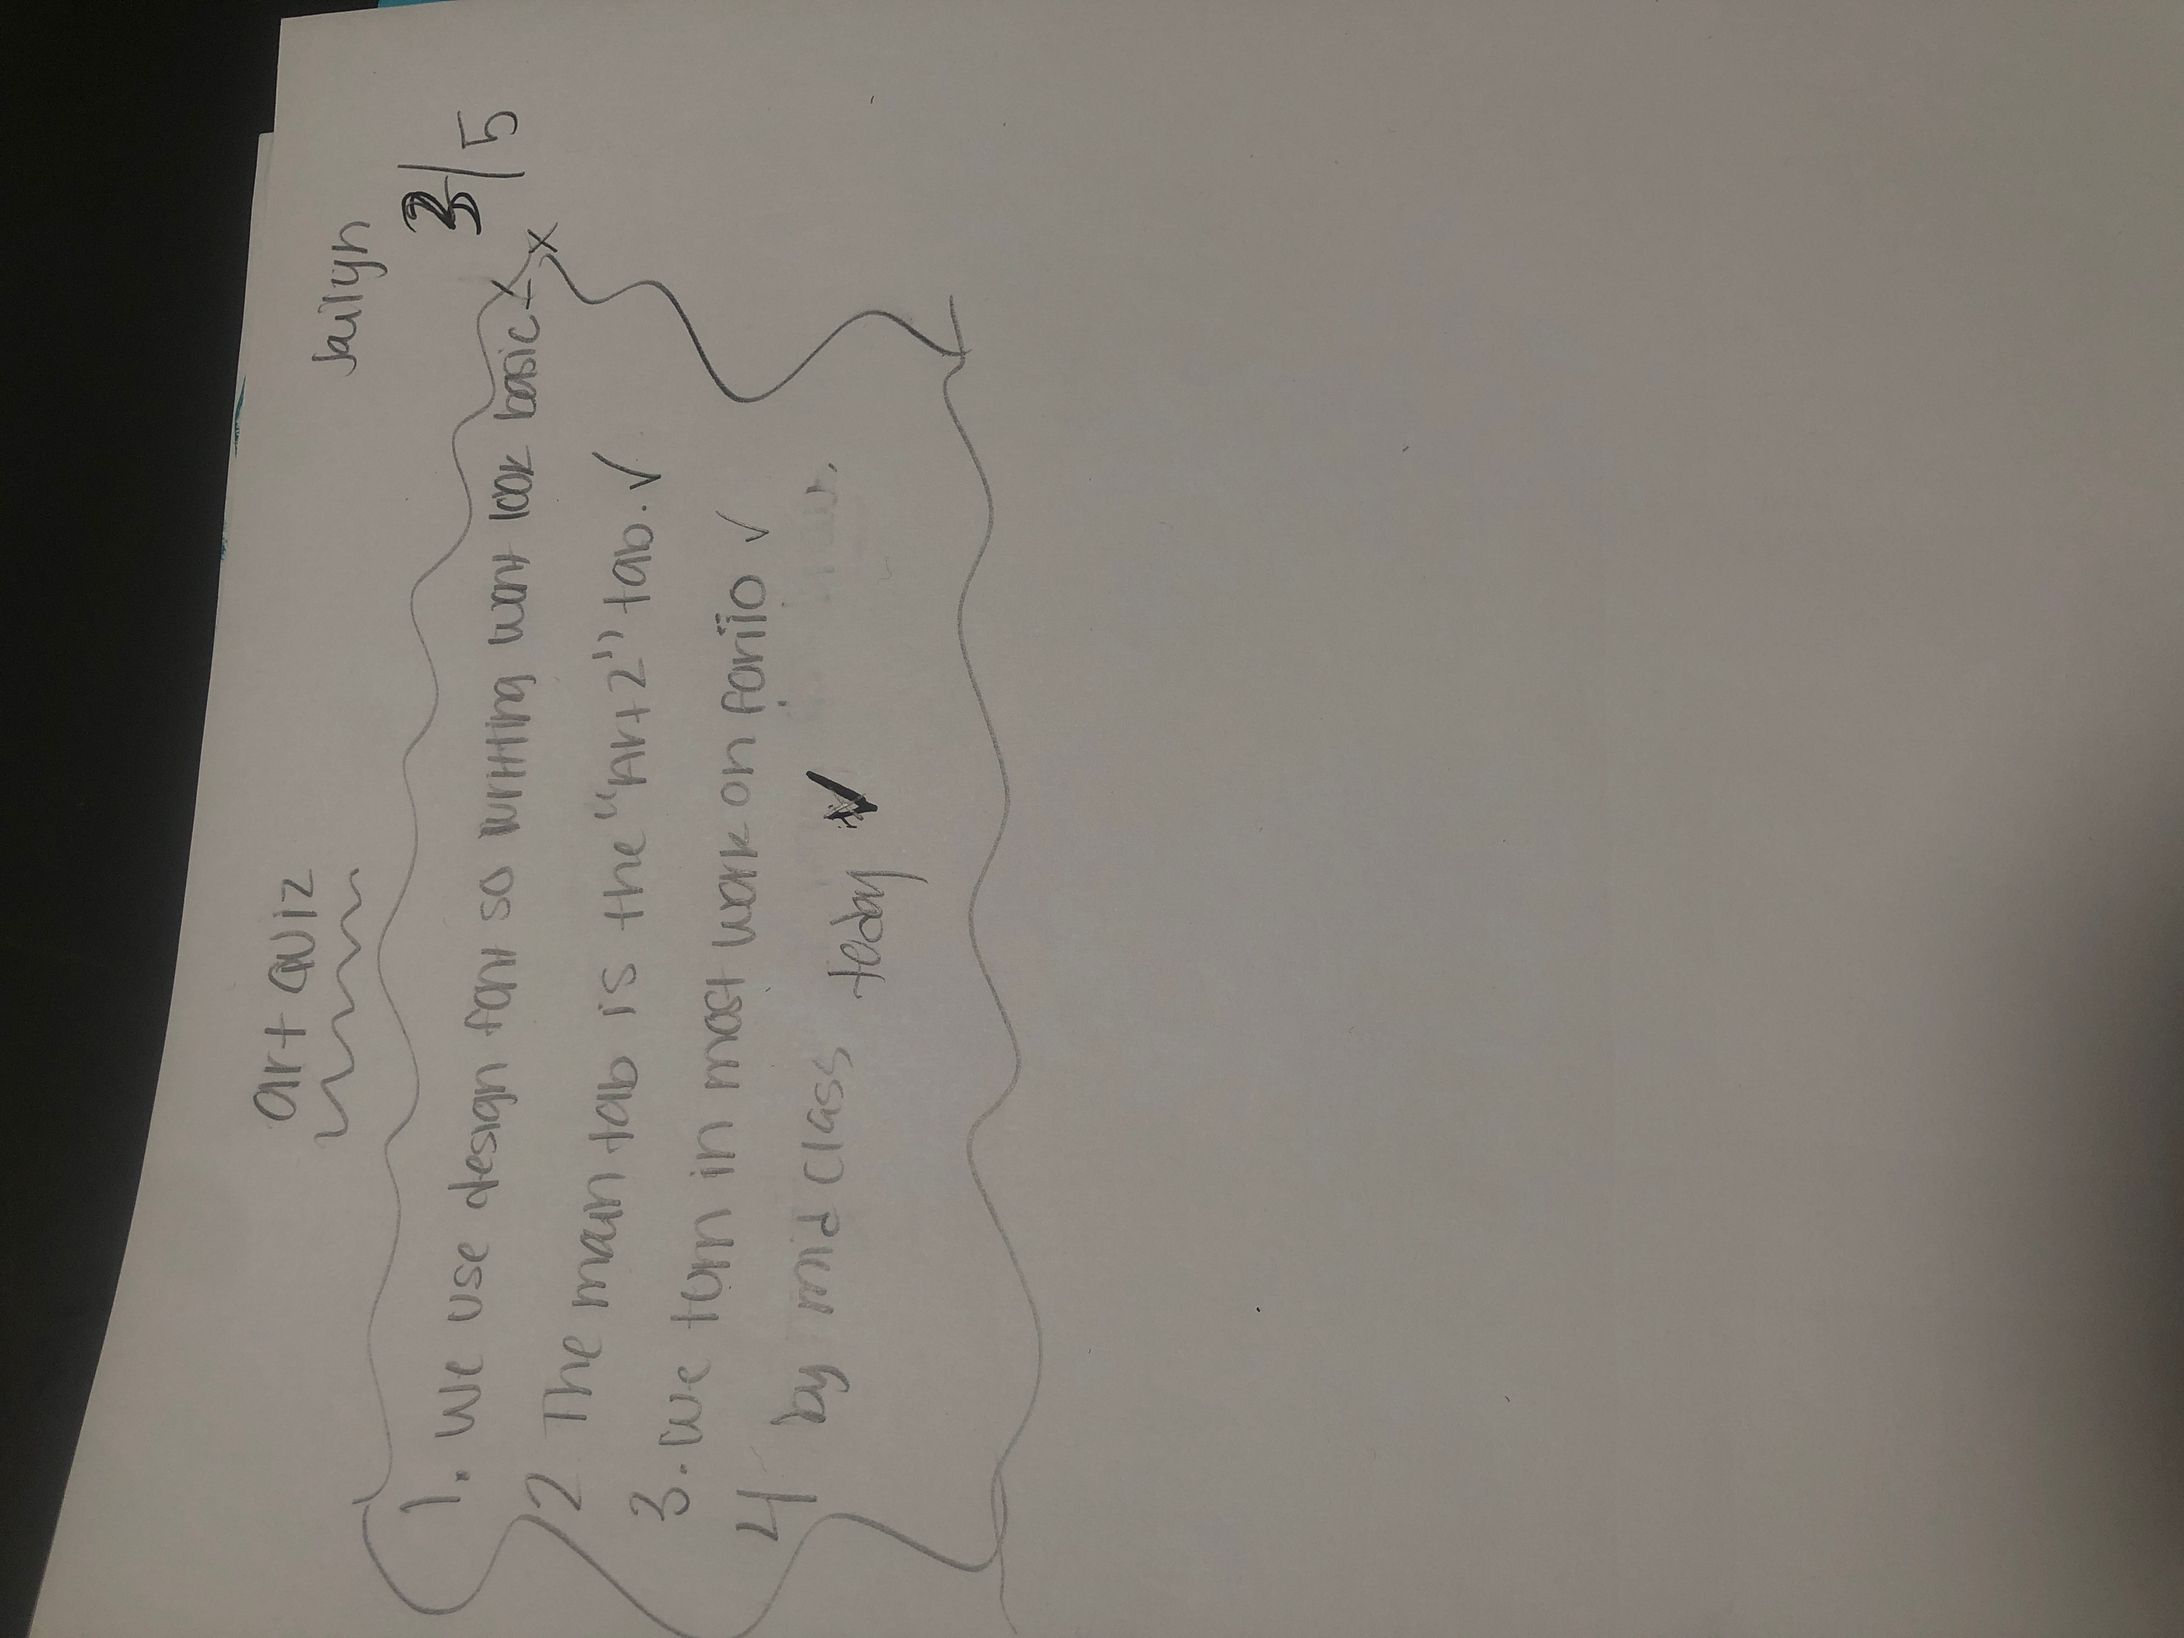 Jailyn
art QUIZ
3/5
1. We use design font so writting wont look basic
2 The main tab is the "Art 2" tab. ✓
3. We turn in most work on foriio ✓
4 by mid class today ✓